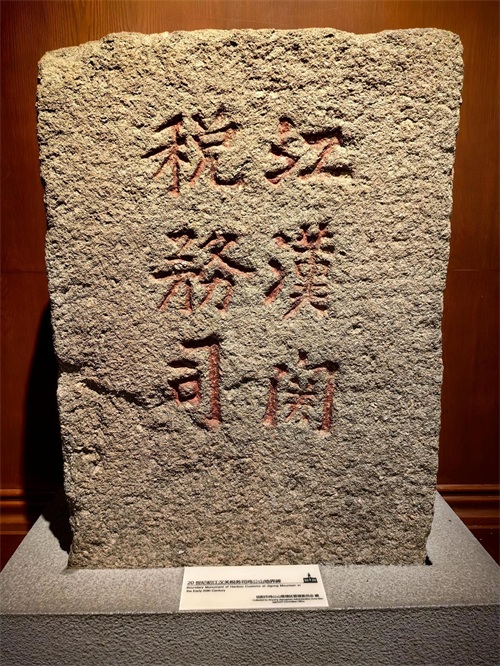 江漢関
税務司
20 世纪初江汉关税务司鸡公山地界碑
Boundary Monument of Hankou Customs at Jigong Mountain in
the Early 20th Century